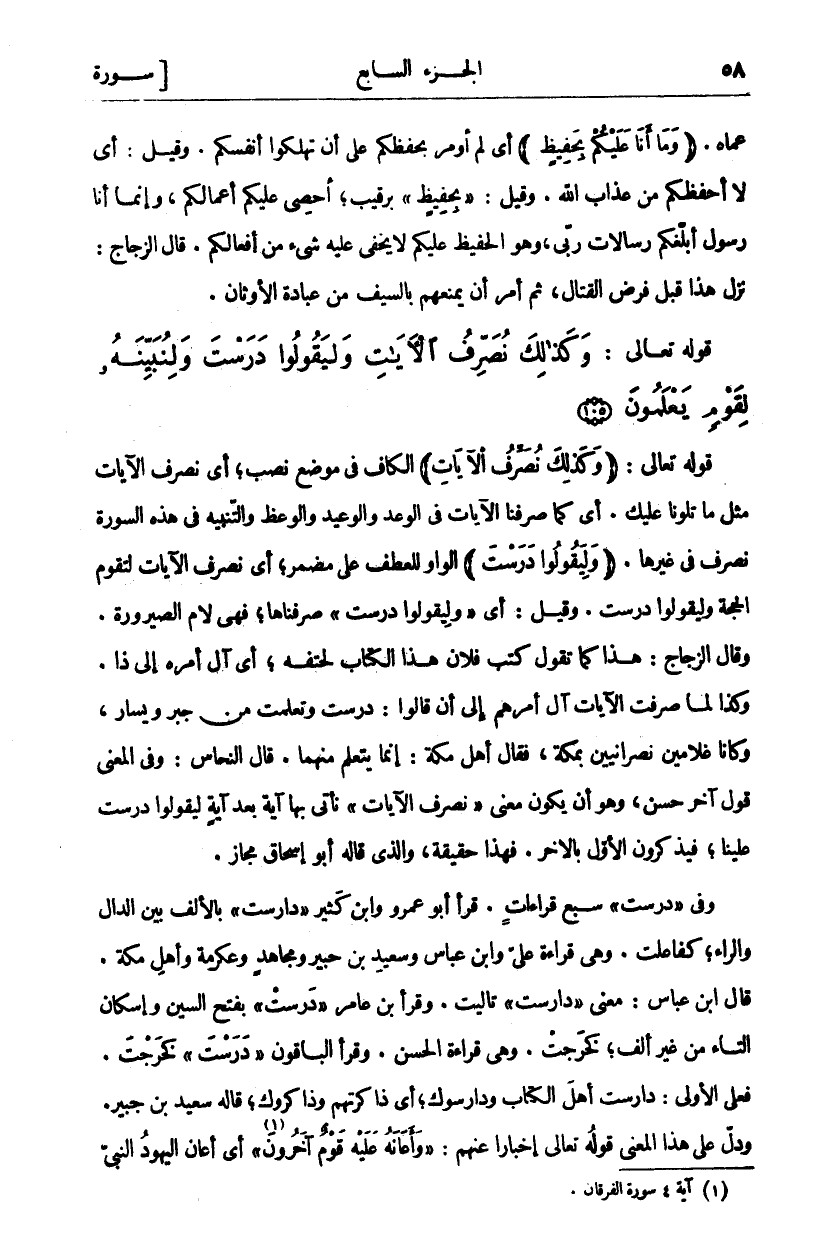 ٥٨ الجـزء السـابع [ سـورة
عماه . ﴿ وَمَا أَنَا عَلَيْكُمْ بِحَفِيظٍ ﴾ أى لم أومر بحفظكم على أن تهلكوا أنفسكم . وقيـل : أى
لا أحفظكم من عذاب الله . وقيل : «بِحفِيظٍ» برقيب؛ أحصِى عليكم أعمالكم ، و إنمـا أنا
رسول أبلّغكم رسالات ربّى ،وهو الحفيظ عليكم لا يخفى عليه شىء من أفعالكم . قال الزجاج :
نزل هذا قبل فرض القتال، ثم أمر أن يمنعهم بالسيف من عبادة الأوثان .
قوله تعـالى : وَكَذَٰلِكَ نُصَرِّفُ ٱلْآيَـٰتِ وَلِيَقُولُوا دَرَسْتَ وَلِنُبَيِّنَـهُۥ
لِقَوْمٍ يَعْلَمُونَ ﴿١٠٥﴾
قوله تعالى : ﴿ وَكَذَلِكَ نُصَرِّفُ ٱلآيَاتِ﴾ الكاف فى موضع نصب؛ أى نصرف الآيات
مثل ما تلونا عليك . أى كما صرفنا الآيات فى الوعد والوعيد والوعظ والتّنبيه فى هذه السورة
نصرف فى غيرها . ﴿ وَلِيَقُولُوا دَرَسْتَ ﴾ الواو للعطف على مضمر؛ أى نصرف الآيات لتقوم
الحجة وليقولوا درست . وقيـل : أى « وليقولوا درست » صرفناها؛ فهى لام الصيرورة .
وقال الزجاج : هـذا كما تقول كتب فلان هـذا الكتاب لحتفـه ؛ أى آل أمره إلى ذا .
وكذا لمـا صرفت الآيات آل أمرهم إلى أن قالوا : درست وتعلمت من جبر و يسار ،
وكانا غلامين نصرانيين بمكة ، فقال أهل مكة : إنما يتعلم منهما . قال النحاس : وفى المعنى
قول آخر حسن، وهو أن يكون معنى « نصرف الآيات » نأتى بها آية بعد آيةٍ ليقولوا درست
علينا ؛ فيذكرون الأوّل بالآخر . فهذا حقيقة، والذى قاله أبو إسحاق مجاز .
وفى «درست» سبع قراءاتٍ . قرأ أبو عمرو وابن كَثير «دارست» بالألف بين الدال
والراء؛ كفاعلت . وهى قراءة علىّ وابن عباس وسعيدِ بن جبير ومجاهدٍ وعكرمة وأهلِ مكة .
قال ابن عباس : معنى «دارست» تاليت . وقرأ بن عامر «دَرستْ» بفتح السين و إسكان
التـاء من غير ألف؛ كَخَرجتْ . وهى قراءة الحسن . وقرأ البـاقون « دَرَسْتَ » كَخَرَجْتَ .
فعلى الأولى : دارست أهلَ الكتاب ودارسوك؛أى ذاكرتهم وذاكروك؛ قاله سعيد بن جبير.
ودلّ على هذا المعنى قولُه تعالى إخبارا عنهم : «وَأَعَانَهُ عَلَيْهِ قَوْمٌ آخَرُونَ(١)» أى أعان اليهودُ النبىّ
(١) آية ٤ سورة الفرقان .